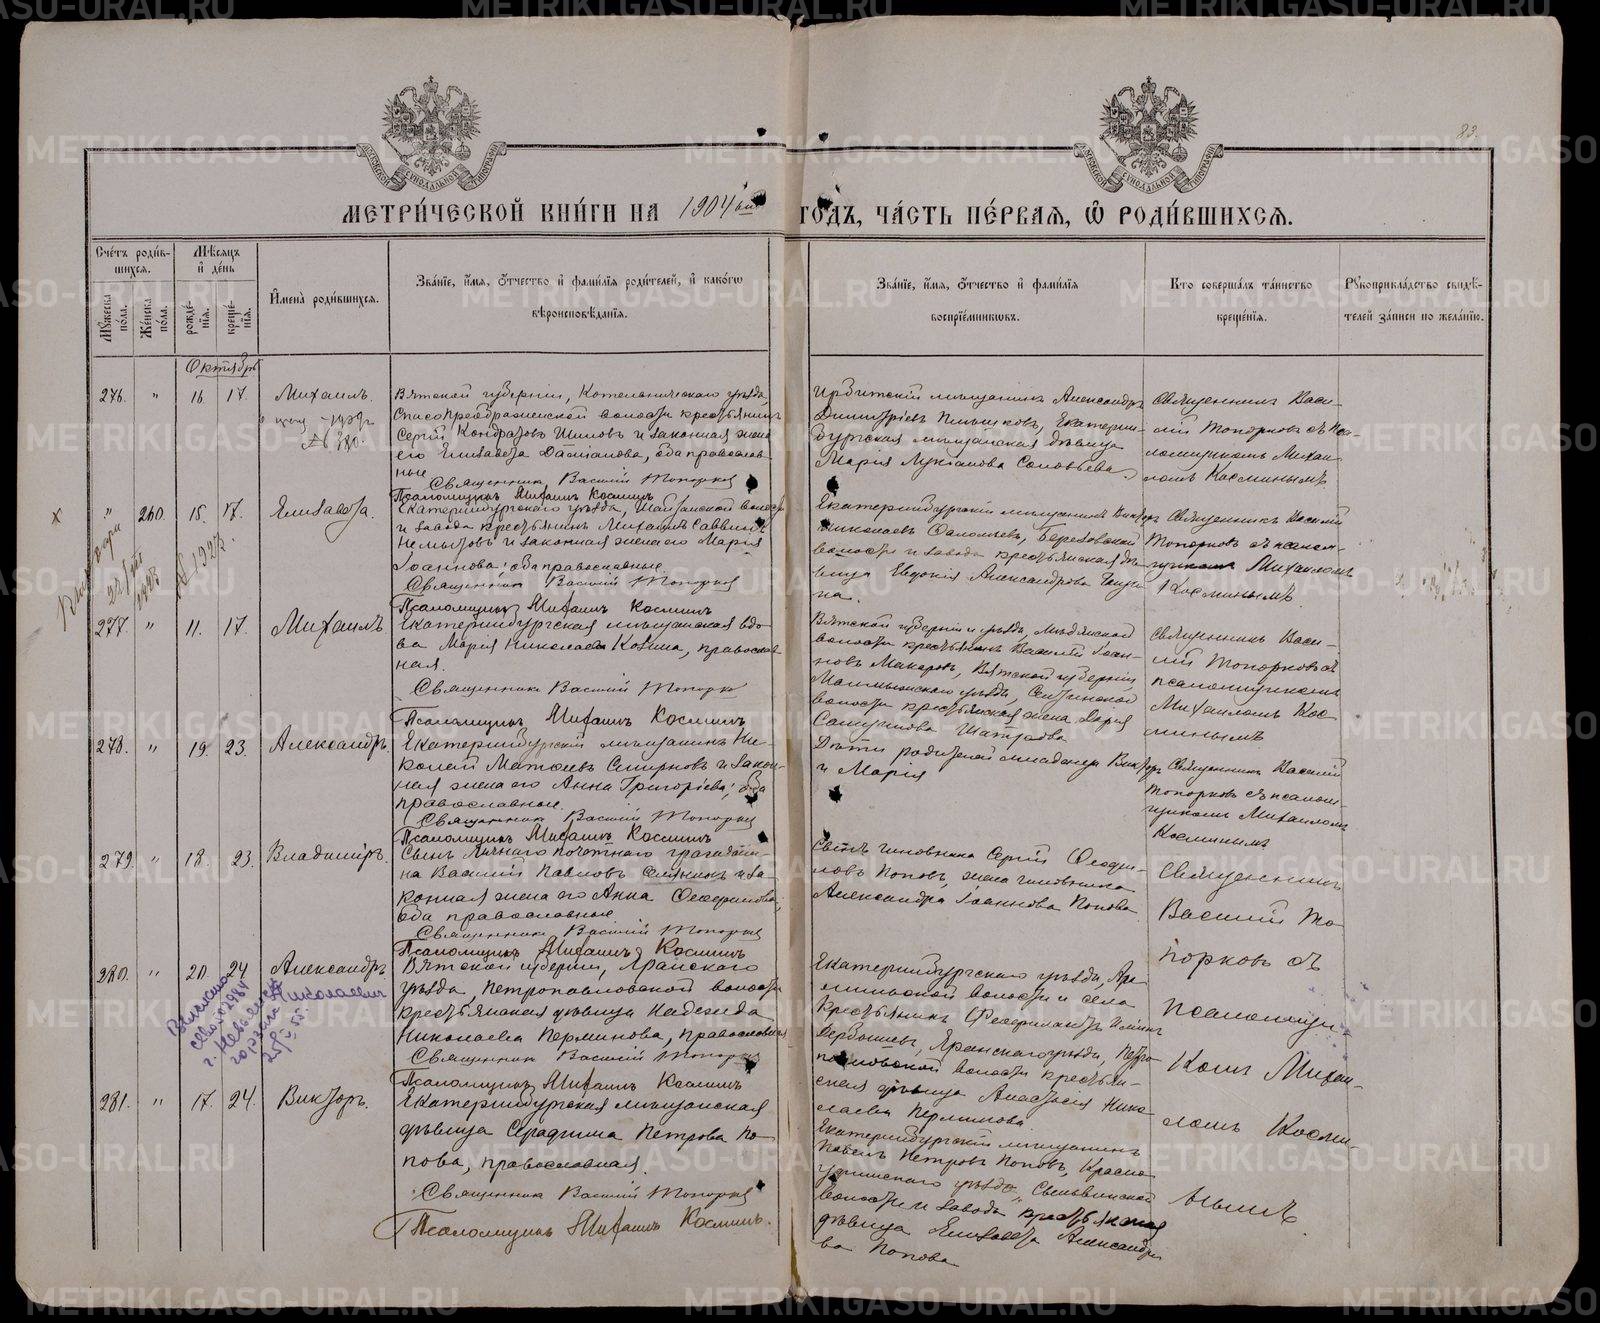 83.
МЕТРИ́ЧЕСКОЙ КНИ́ГИ НА 1904 ый
ГОДЪ, ЧА́СТЬ ПЕ́РВАЯ, Ѽ РОДИ́ВШИХСЯ.
Сче́тъ роди́в-
шихся.
Му́жеска по́ла.
Же́нска по́ла.
Мѣ́сяцъ и де́нь
рожде́-
нія.
креще́-
нія.
Имена̀ роди́вшихся.
Зва́ніе, и́мя, о́тчество и фами́лія роди́телей, и како́гѡ
вѣроисповѣ́данія.
Зва́ніе, и́мя, о́тчество и фами́лія
воспріе́мниковъ.
Кто̀ соверша́лъ та́инство
креще́нія.
Рукоприкла́дство свидѣ́-
телей за́писи по жела́нію.
Октябрь
276. " 16 17. Михаилъ.
Вятской губерніи, Котельническаго уѣзда,
Спасопреображенской волости крестьянинъ
Сергій Кондратовъ Шиловъ и законная жена
его Елизавета Даміанова, оба православ-
ные
Священникъ Василій Топорковъ
Псаломщикъ Михаилъ Косминъ
Ирбитскій мѣщанинъ Александръ
Димитріевъ Пьянковъ, Екатерин-
бургская мѣщанская дѣвица
Марія Лукіанова Соловьева
Священникъ Васи-
лій Топорковъ съ пса-
ломщикомъ Михаи-
ломъ Косминымъ
" 260. 15. 17. Елизавета.
Екатеринбургскаго уѣзда, Шайтанской волости
и завода крестьянинъ Михаилъ Саввинъ
Немытовъ и законная жена его Марія
Іоаннова; оба православные.
Священникъ Василій Топорковъ
Псаломщикъ Михаилъ Косминъ
Екатеринбургскій мѣщанинъ Викторъ
Николаевъ Соломеевъ, Березовской
волости и завода крестьянская дѣ-
вица Евдокія Александрова
на.
Священникъ Василій
Топорковъ съ псалом-
щикомъ Михаиломъ
Косминымъ.
277. " 11. 17. Михаилъ
Екатеринбургская мѣщанская вдо-
ва Марія Николаева Козина, православ-
ная.
Священникъ Василій Топорковъ
Псаломщикъ Михаилъ Косминъ
Вятской губерніи и уѣзда, Мѣдянской
волости крестьянинъ Василій Іоан-
новъ Макаровъ, Вятской губерніи
Малмыжскаго уѣзда,
волости крестьянская жена Дарія
Самуилова
Священникъ Васи-
лій Топорковъ съ
псаломщикомъ
Михаиломъ Кос-
минымъ
278. " 19. 23. Александръ.
Екатеринбургскій мѣщанинъ Ни-
колай Матѳеевъ Смирновъ и закон-
ная жена его Анна Григоріева; оба
православные.
Священникъ Василій Топорковъ
Псаломщикъ Михаилъ Косминъ
Дѣти родителей младенца Викторъ
и Марія
Священникъ Василій
Топорковъ съ псалом-
щикомъ Михаиломъ
Косминымъ
279. " 18. 23. Владиміръ.
Сынъ личнаго почетнаго граждани-
на Василій Павловъ и за-
конная жена его Анна Северіанова;
оба православные.
Священникъ Василій Топорковъ
Псаломщикъ Михаилъ Косминъ
Сынъ чиновника Сергій Ѳеодо-
ровъ Поповъ, жена чиновника
Александра Іоаннова Попова
Священникъ
Василій То-
порковъ съ
псаломщи-
комъ Михаи-
ломъ Косми-
нымъ
280. " 20. 24 Александръ
Вятской губерніи, Яранскаго
уѣзда, Петропавловской волости
крестьянская дѣвица Надежда
Николаева Перминова, православная
Священникъ Василій Топорковъ
Псаломщикъ Михаилъ Косминъ
Екатеринбургскаго уѣзда, Ара-
мильской волости и села
крестьянинъ
Яранскаго уѣзда, Петро-
павловской волости крестьян-
ская дѣвица Анастасія Нико-
лаева Перминова
281. " 17. 24. Викторъ.
Екатеринбургская мѣщанская
дѣвица Серафима Петрова По-
пова, православная.
Священникъ Василій Топорковъ
Псаломщикъ Михаилъ Косминъ.
Екатеринбургскій мѣщанинъ
Павелъ Петровъ Поповъ, Красно-
уфимскаго уѣзда, Сылвинской
волости и завода крестьянская
дѣвица Елизавета Александро-
ва Попова
METRIKI.GASO-URAL.RU